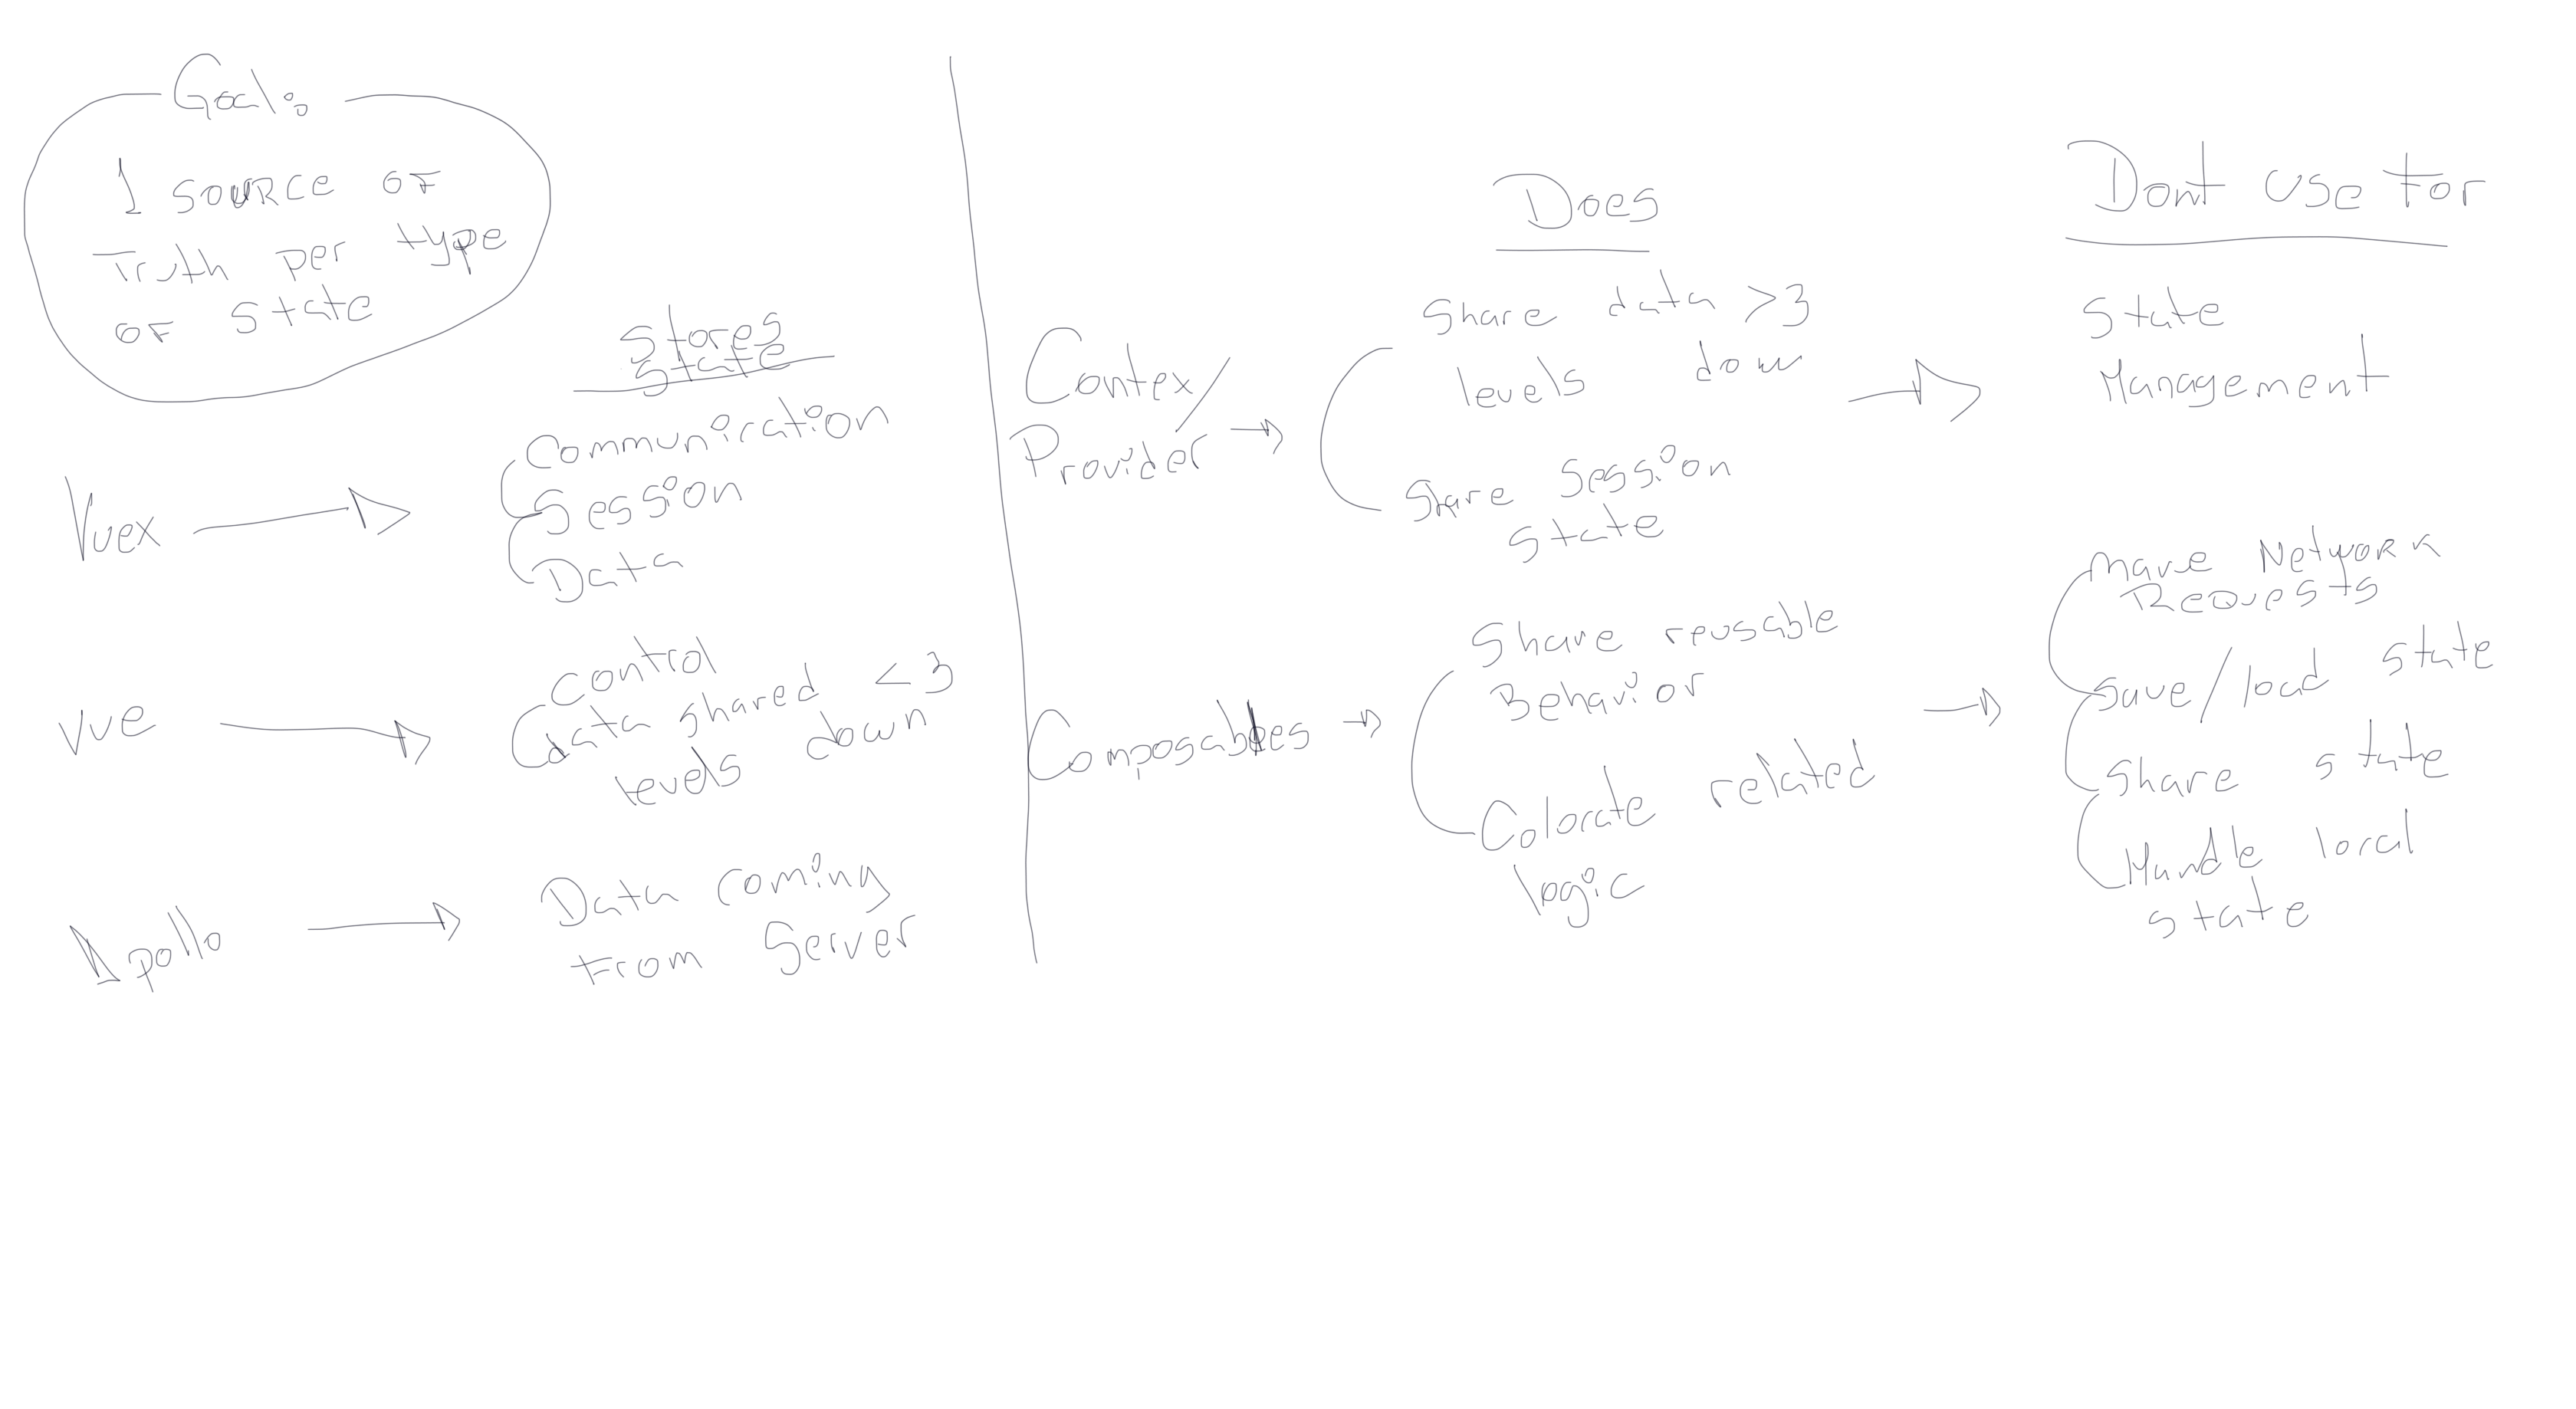 Goal:
1 source of
Truth per type
of state
Stores
state
Vuex
Communication
Session
Data
Vue
control
data shared <3
levels down
Apollo
Data coming
from Server
Does
Dont use for
Contex/
Provider
Share data >3
levels down
Share Session
State
State
Management
Composables
Share reusable
Behavior
Colocate related
logic
Make Network
Requests
Save/load state
Share state
Handle local
state